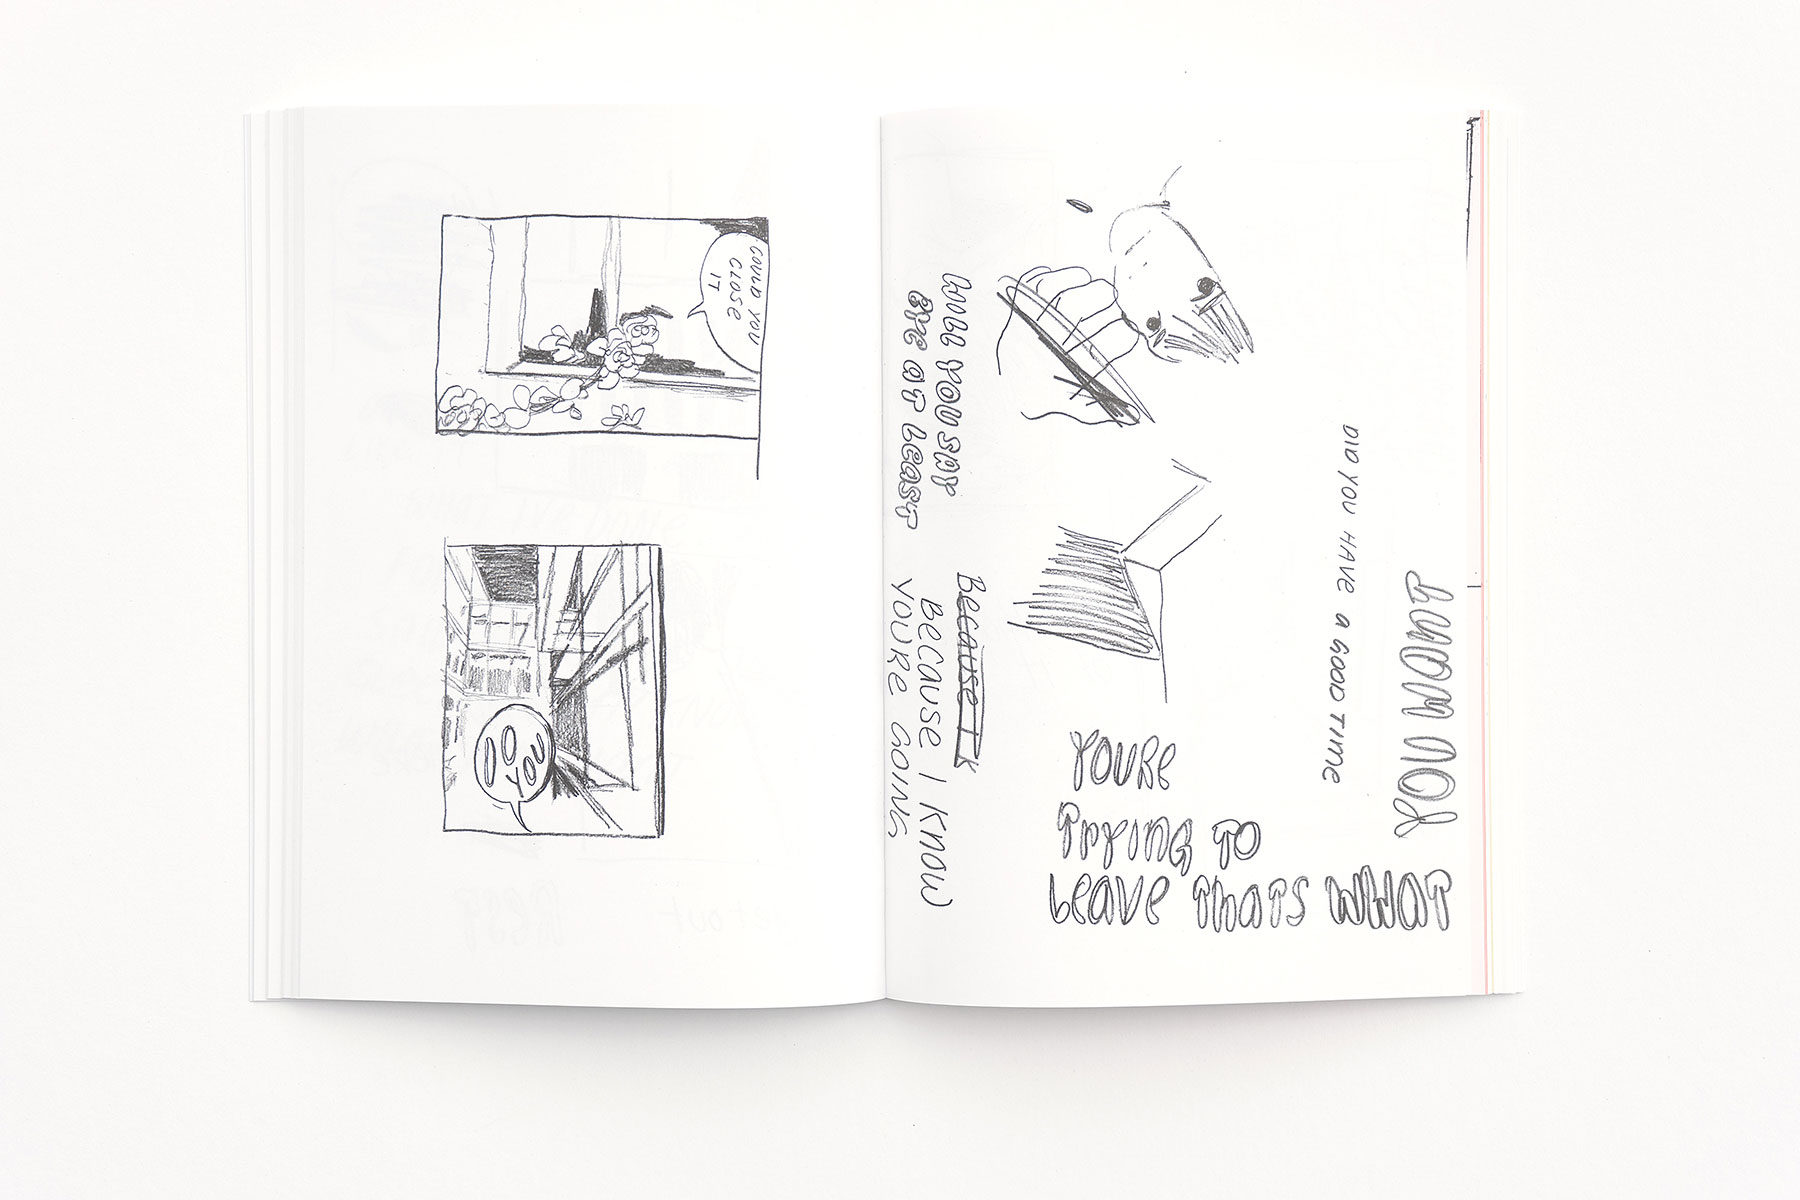 COULD YOU
CLOSE
IT
DO
YOU
WILL YOU SAY
BYE AT LEAST
BECAUSE I K
BECAUSE I KNOW
YOURE GOING
DID YOU HAVE A GOOD TIME
YOURE
TRYING TO
LEAVE THATS WHAT
YOU WANT